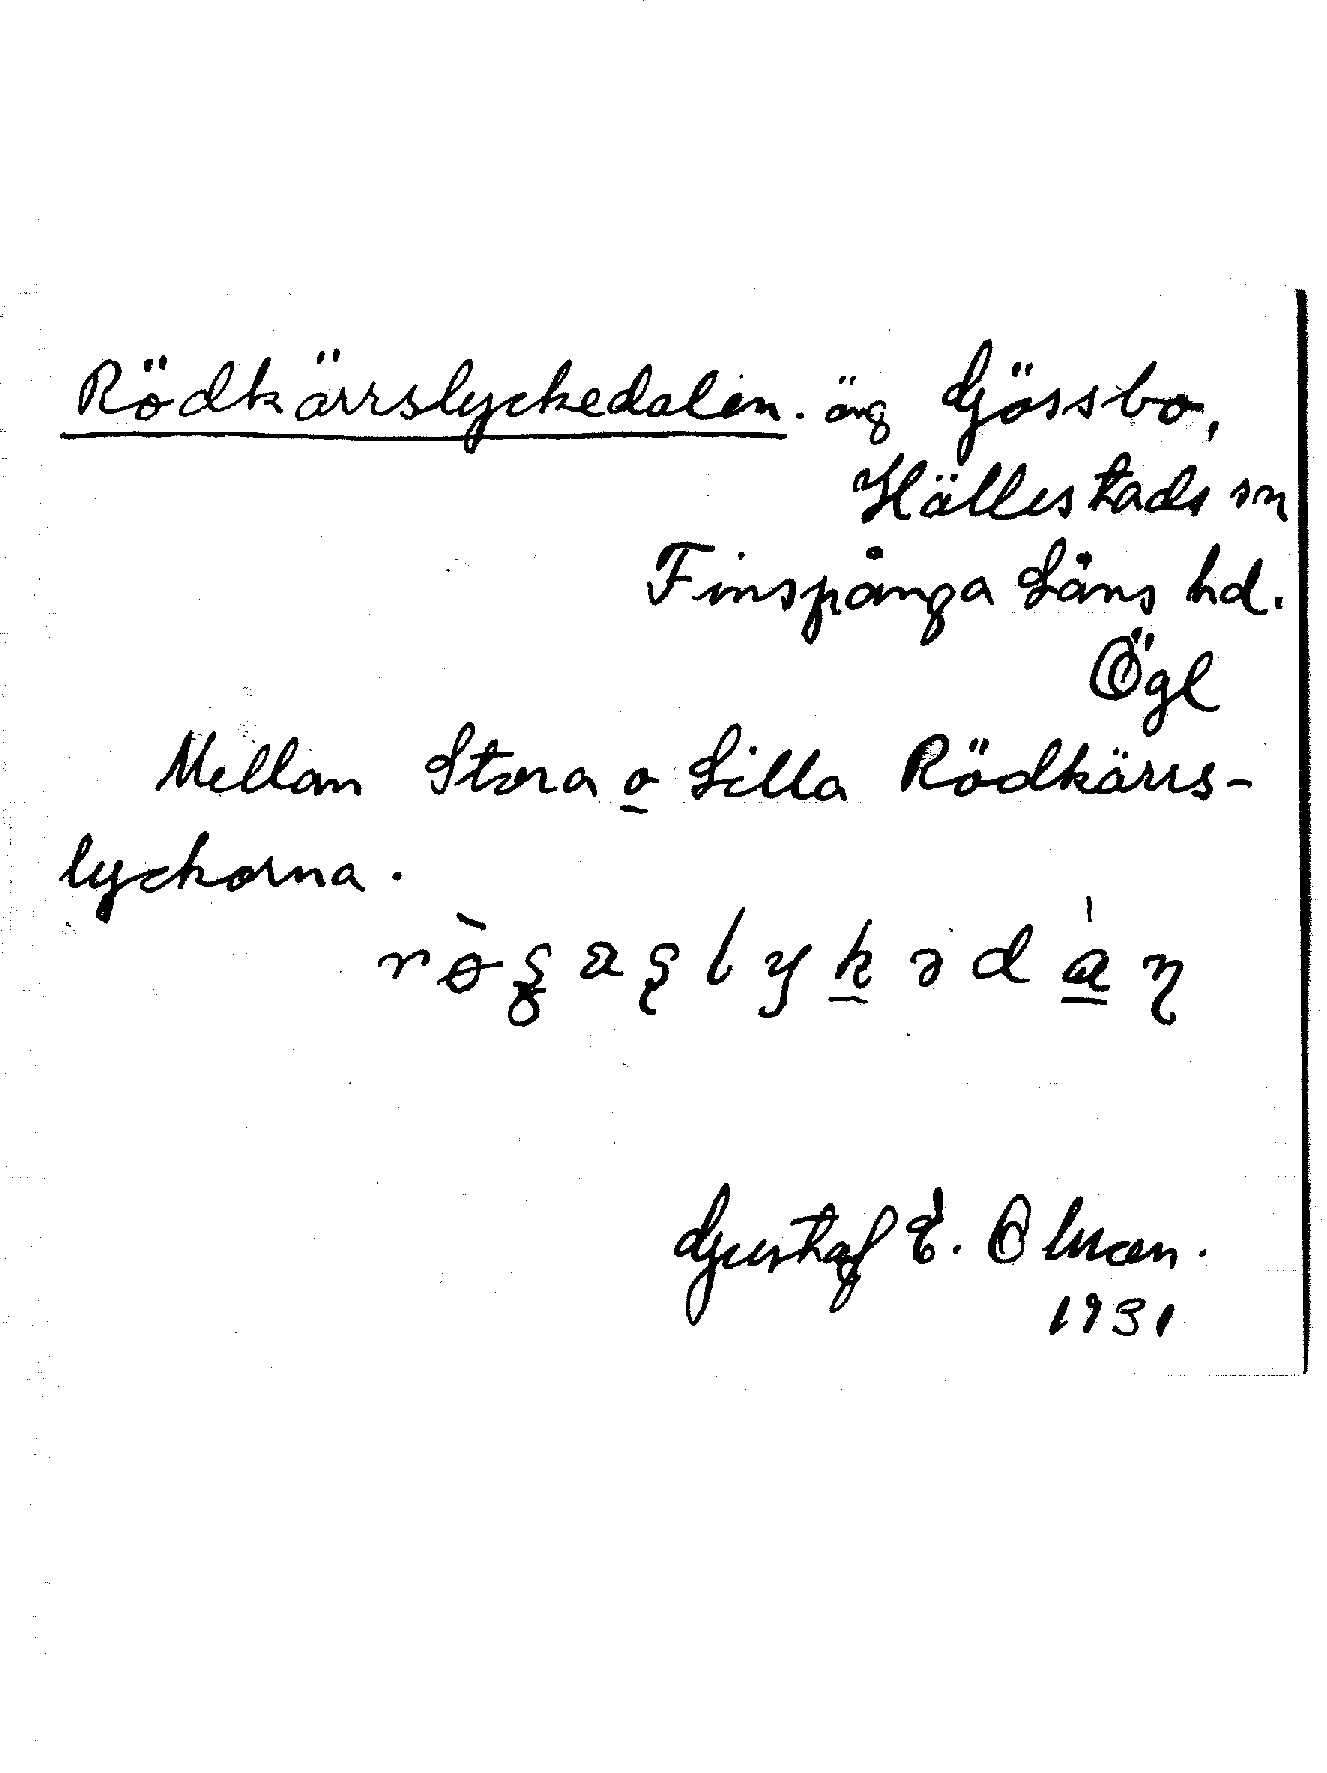 Rödkärrslyckedalen. äng Gjössbo,
Hällestads sn
Finspånga Läns hd.
Ögl
Mellan Stora o Lilla Rödkärrs-
lyckorna.
Gustaf E. Olman.
1931